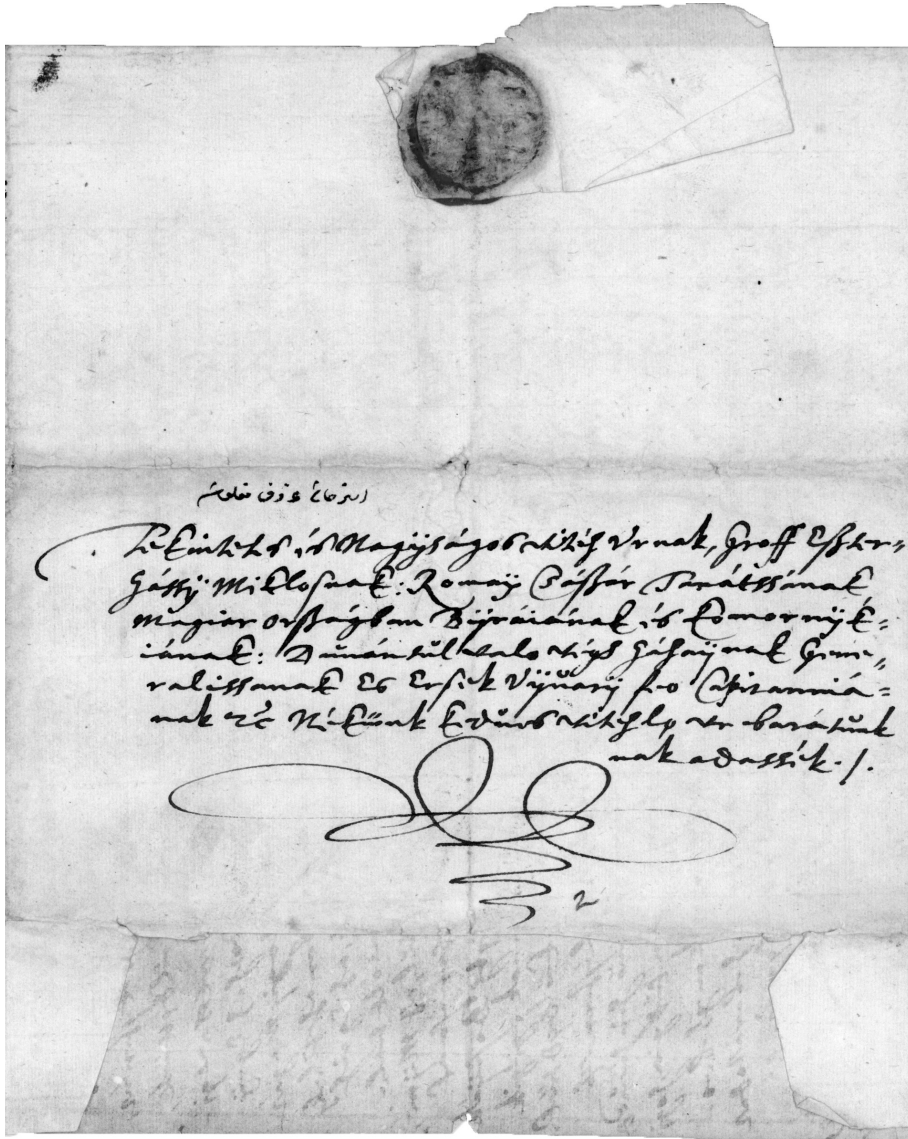 Tekintetes és Nagÿságos vitéz Vrnak, Groff Eszter-
házÿ Miklosnak: Romaÿ Császár Tanátssának
Magiar országban Bÿráiának és komornÿk-
iának: Dunántúl valo végh házaÿnak Gene-
ralissanak Es Ersek Vÿuarÿ feo Capitanniá-
nak etc Nékünk kedues vitézlo vr barátunk
nak adassék ./.
2